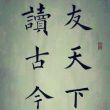 友天下
讀古今